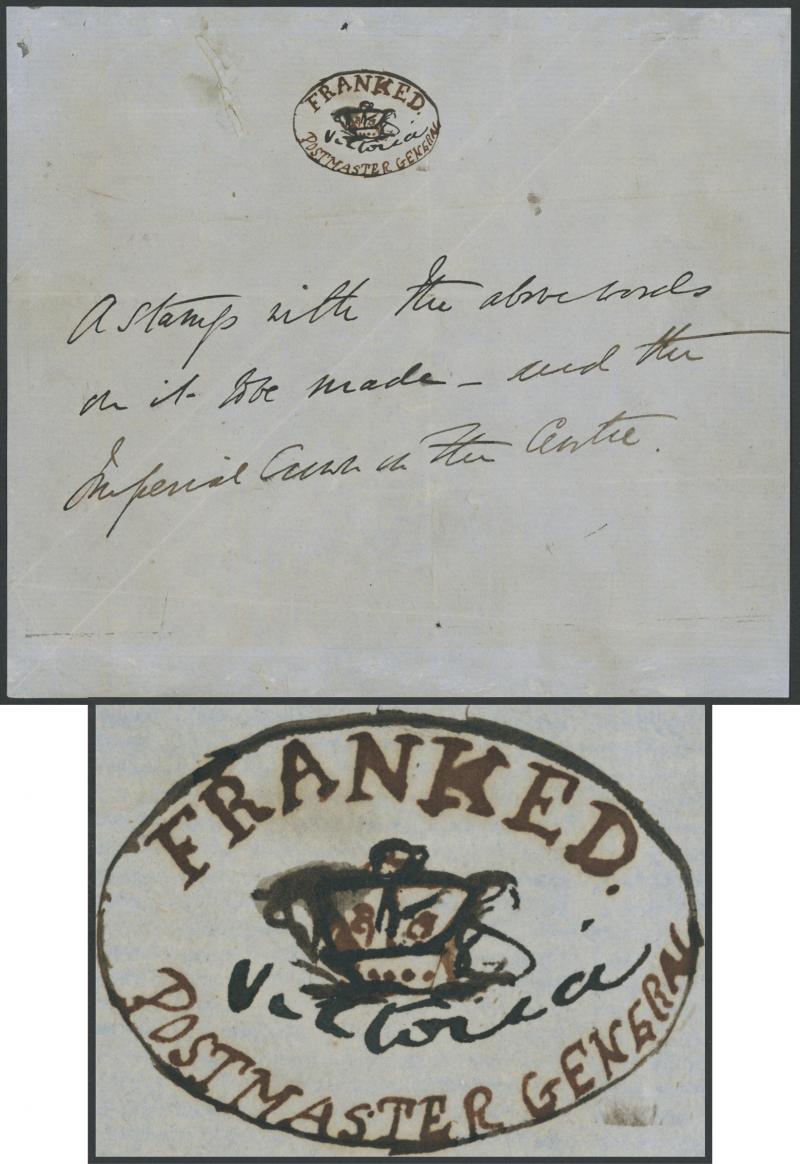 FRANKED.
Victoria
POSTMASTER GENERAL
A stamp with the above words
on it to be made - and the
Imperial Crown in the Centre.
FRANKED.
Victoria
POSTMASTER GENERAL